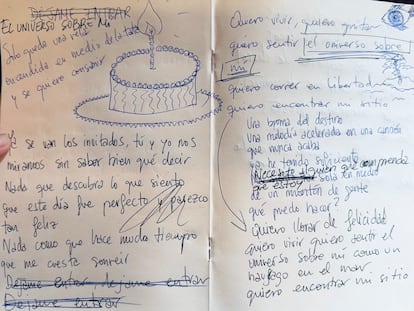 DEJAME ENTRAR
EL UNIVERSO SOBRE MI
Sólo queda una vela
encendida en medio de la tarta
y se quiere consumir
Ya se van los invitados, tú y yo nos
miramos sin saber bien que decir
Nada que descubra lo que siento
que este día fue perfecto y parezco
tan feliz
Nada como que hace mucho tiempo
que me cuesta sonreir
Dejame entrar dejame entrar
Dejame entrar
Quiero vivir, quiero gritar
quiero sentir el universo sobre
mi
quiero correr en libertad
quiero encontrar mi sitio
Una broma del destino
Una melodía acelerada en una canción
que nunca acaba
ya he tenido suficiente
Necesito alguien que comprenda
que estoy sola en medio
de un montón de gente
qué puedo hacer!
Quiero llorar de felicidad
quiero vivir quiero sentir el
universo sobre mi como un
naufrago en el mar
quiero encontrar mi sitio